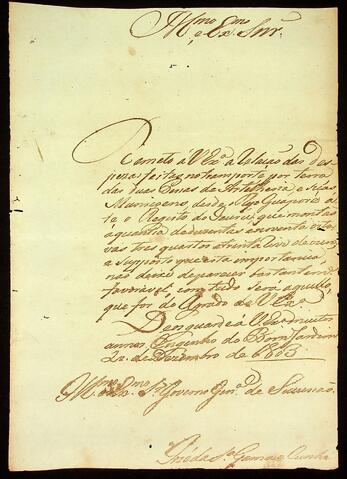 Illmo. Exmo.
e Ex. Snr.
Remeto á V Exa. a relação das des
pezas feitas no transporte por terra
das duas Pessas de Artelharia e suas
Municoens, desde o Rio Guaporé a
te o Registo do Jaurú, que montas
á quantia de duzentas e noventa oita
vas tres quartos e trinta
e supposto que esta importancia
não deixe de parecer bastante
favoravel, com tudo será aquillo,
que for do Agrado de V. Exa.
Deos guarde á V. Exa. muitos
annos. Engenho do Bom Jardim
22 de Dezembro de 1803
Illmo. e Exmo. Sr. Governo Genal. de Sucessão.
José da Sa. Gama e Cunha